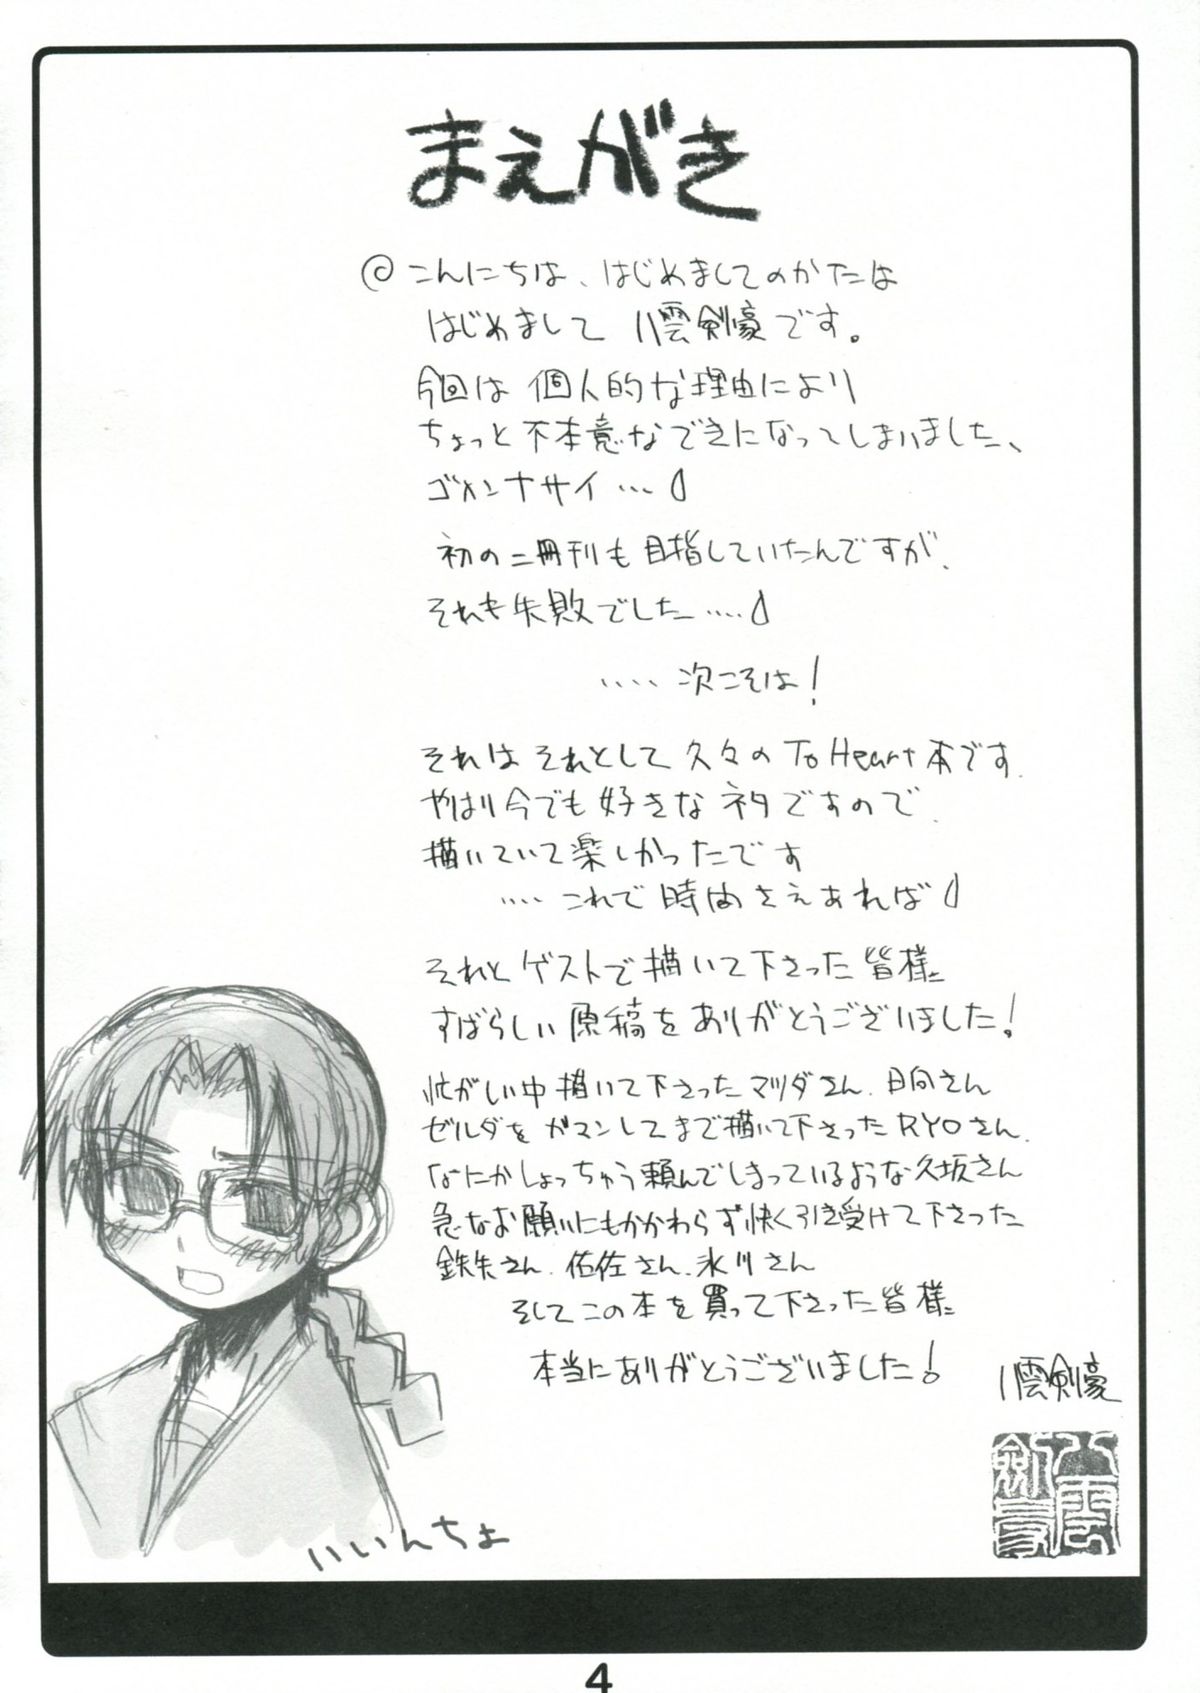 まえがき
◎こんにちは、はじめましてのかたは
はじめまして 八雲剣豪です。
今回は 個人的な理由により
ちょっと不本意なできになってしまいました、
ゴメンナサイ…
初の二冊刊も目指していたんですが、
それも失敗でした……
‥‥ 次こそは!
それは それとして 久々の To Heart本です.
やはり今でも好きなネタですので、
描いていて楽しかったです
‥‥これで時間さえあれば
それと ゲストで描いて下さった皆様
すばらしい原稿をありがとうございました!
忙がしい中描いて下さったマツダさん、日向さん
ゼルダをガマンしてまで描いて下さったRYOさん、
なにかしょっちゅう頼んでしまっているような久坂さん
急なお願いにもかかわらず快く引き受けて下さった
鉄矢さん、佑佐さん、氷川さん
そしてこの本を買って下さった皆様
本当にありがとうございました!
八雲剣豪
八雲
剣豪
いいんちょ
4